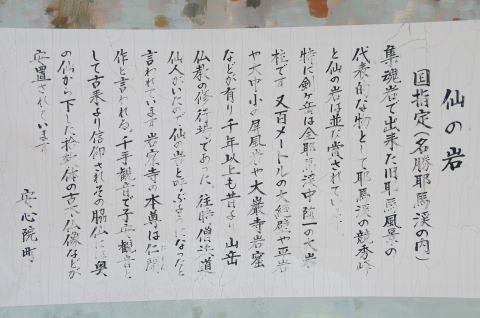 仙の岩
国指定(名勝耶馬渓の内)
集魂岩で出来た旧耶馬風景の
代表的な物として耶馬渓の競秀峰
と仙の岩は並び賞されています
特に剣ヶ岳は全耶馬渓中随一の大岩
柱です 又百メートルの大絶壁や平岩
や大中小の屏風岩や大巌寺岩窟
などが有り千年以上も昔より山岳
仏教の修行場であった。往時僧法道
仙人がいたので仙の岩と呼ぶ様になったと
言われています岩窓寺の本尊は仁聞
作と言われる。千手観音で子安観音と
して古来より信仰されその脇仏には奥
の仙から下した 体の古い仏像などが
安置されています
安心院町